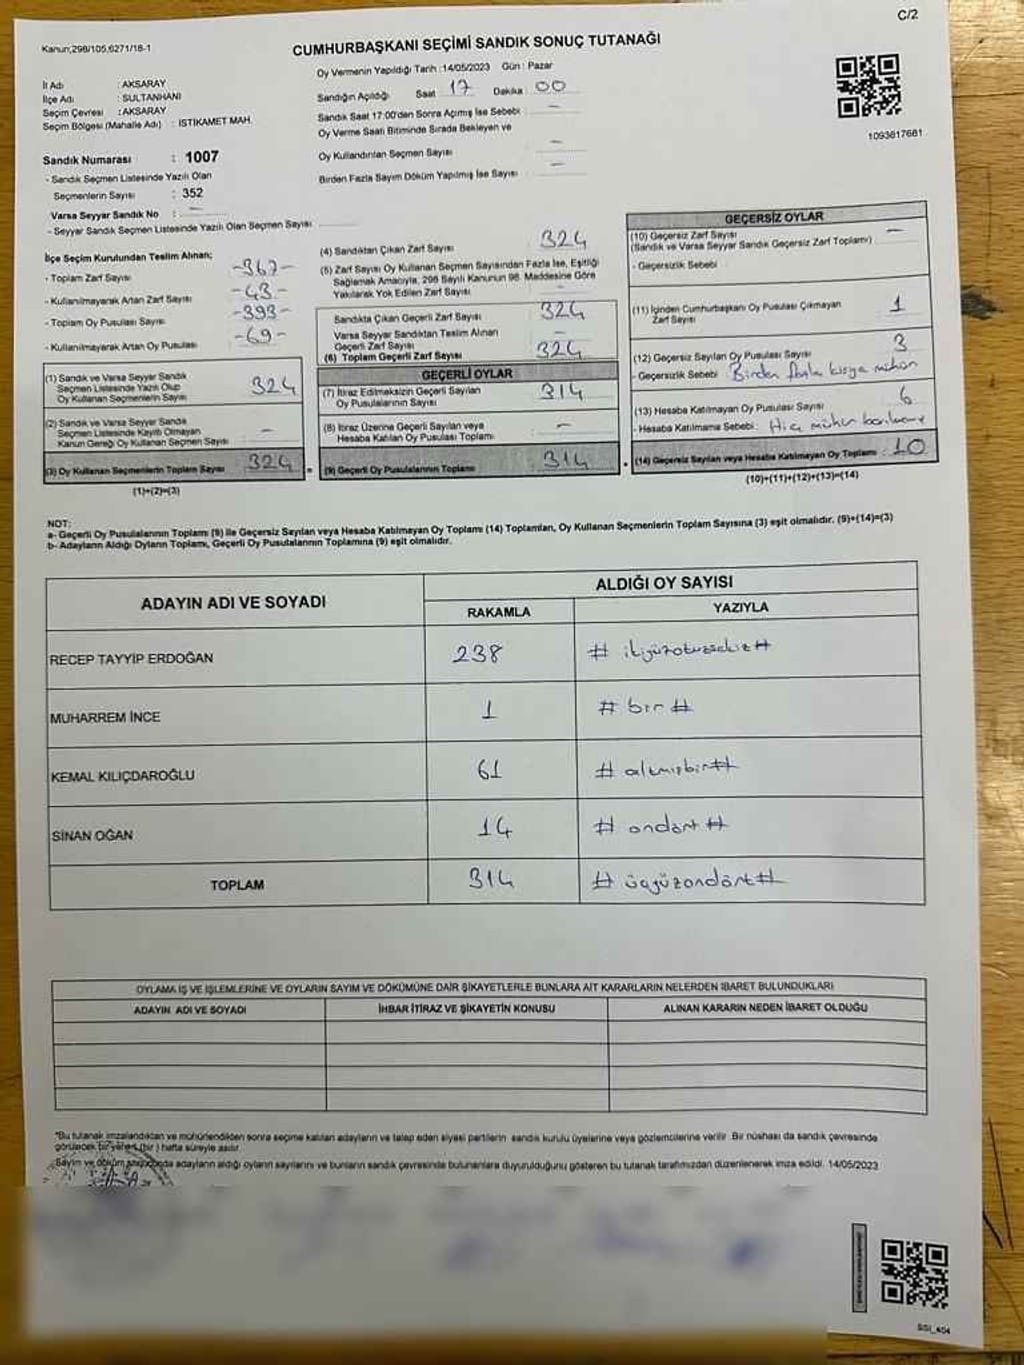 C/2
Kanun;298/105,6271/18-1
CUMHURBAŞKANI SEÇİMİ SANDIK SONUÇ TUTANAĞI
Oy Vermenin Yapıldığı Tarih :14/05/2023 Gün : Pazar
İl Adı : AKSARAY
İlçe Adı : SULTANHANI
Seçim Çevresi : AKSARAY
Seçim Bölgesi (Mahalle Adı) : İSTİKAMET MAH.
Sandığın Açıldığı Saat 17 Dakika 00
Sandık Saat 17:00'den Sonra Açımış İse Sebebi : —
Oy Verme Saati Bitiminde Sırada Bekleyen ve
Oy Kullandırılan Seçmen Sayısı —
Birden Fazla Sayım Döküm Yapılmış İse Sayısı —
1093817681
Sandık Numarası : 1007
- Sandık Seçmen Listesinde Yazılı Olan
Seçmenlerin Sayısı : 352
Varsa Seyyar Sandık No : —
- Seyyar Sandık Seçmen Listesinde Yazılı Olan Seçmen Sayısı
İlçe Seçim Kurulundan Teslim Alınan;
- Toplam Zarf Sayısı -367-
- Kullanılmayarak Artan Zarf Sayısı -43-
- Toplam Oy Pusulası Sayısı -393-
- Kullanılmayarak Artan Oy Pusulası -69-
(1) Sandık ve Varsa Seyyar Sandık
Seçmen Listesinde Yazılı Olup
Oy Kullanan Seçmenlerin Sayısı 324
(2) Sandık ve Varsa Seyyar Sandık
Seçmen Listesinde Kayıtlı Olmayan
Kanun Gereği Oy Kullanan Seçmen Sayısı —
(3) Oy Kullanan Seçmenlerin Toplam Sayısı 324
(1)+(2)=(3)
(4) Sandıktan Çıkan Zarf Sayısı 324
(5) Zarf Sayısı Oy Kullanan Seçmen Sayısından Fazla İse, Eşitliği
Sağlamak Amacıyla, 298 Sayılı Kanunun 98. Maddesine Göre
Yakılarak Yok Edilen Zarf Sayısı —
Sandıkta Çıkan Geçerli Zarf Sayısı 324
Varsa Seyyar Sandıktan Teslim Alınan
Geçerli Zarf Sayısı —
(6) Toplam Geçerli Zarf Sayısı 324
GEÇERLİ OYLAR
(7) İtiraz Edilmeksizin Geçerli Sayılan
Oy Pusulalarının Sayısı 314
(8) İtiraz Üzerine Geçerli Sayılan veya
Hesaba Katılan Oy Pusulası Toplamı —
(9) Geçerli Oy Pusulalarının Toplamı 314
GEÇERSİZ OYLAR
(10) Geçersiz Zarf Sayısı
(Sandık ve Varsa Seyyar Sandık Geçersiz Zarf Toplamı) —
- Geçersizlik Sebebi
(11) İçinden Cumhurbaşkanı Oy Pusulası Çıkmayan
Zarf Sayısı 1
(12) Geçersiz Sayılan Oy Pusulası Sayısı 3
- Geçersizlik Sebebi : Birden fazla kişiye mühür
(13) Hesaba Katılmayan Oy Pusulası Sayısı 6
- Hesaba Katılmama Sebebi : Hiç mühür
(14) Geçersiz Sayılan veya Hesaba Katılmayan Oy Toplamı : 10
(10)+(11)+(12)+(13)=(14)
NOT:
a- Geçerli Oy Pusulalarının Toplamı (9) ile Geçersiz Sayılan veya Hesaba Katılmayan Oy Toplamı (14) Toplamları, Oy Kullanan Seçmenlerin Toplam Sayısına (3) eşit olmalıdır. (9)+(14)=(3)
b- Adayların Aldığı Oyların Toplamı, Geçerli Oy Pusulalarının Toplamına (9) eşit olmalıdır.
ADAYIN ADI VE SOYADI
ALDIĞI OY SAYISI
RAKAMLA YAZIYLA
RECEP TAYYİP ERDOĞAN 238 # ikiyüzotuzsekiz #
MUHARREM İNCE 1 # bir #
KEMAL KILIÇDAROĞLU 61 # altmışbir #
SİNAN OĞAN 14 # ondört #
TOPLAM 314 # üçyüzondört #
OYLAMA İŞ VE İŞLEMLERİNE VE OYLARIN SAYIM VE DÖKÜMÜNE DAİR ŞİKAYETLERLE BUNLARA AİT KARARLARIN NELERDEN İBARET BULUNDUKLARI
ADAYIN ADI VE SOYADI İHBAR İTİRAZ VE ŞİKAYETİN KONUSU ALINAN KARARIN NEDEN İBARET OLDUĞU
*Bu tutanak imzalandıktan ve mühürlendikten sonra seçime katılan adayların ve talep eden siyasi partilerin sandık kurulu üyelerine veya gözlemcilerine verilir. Bir nüshası da sandık çevresinde
görülecek bir yere 1 (bir) hafta süreyle asılır.
Sayım ve döküm sonucunda adayların aldığı oyların sayılarını ve bunların sandık çevresinde bulunanlara duyurulduğunu gösteren bu tutanak tarafımızdan düzenlenerek imza edildi. 14/05/2023
SSI_404